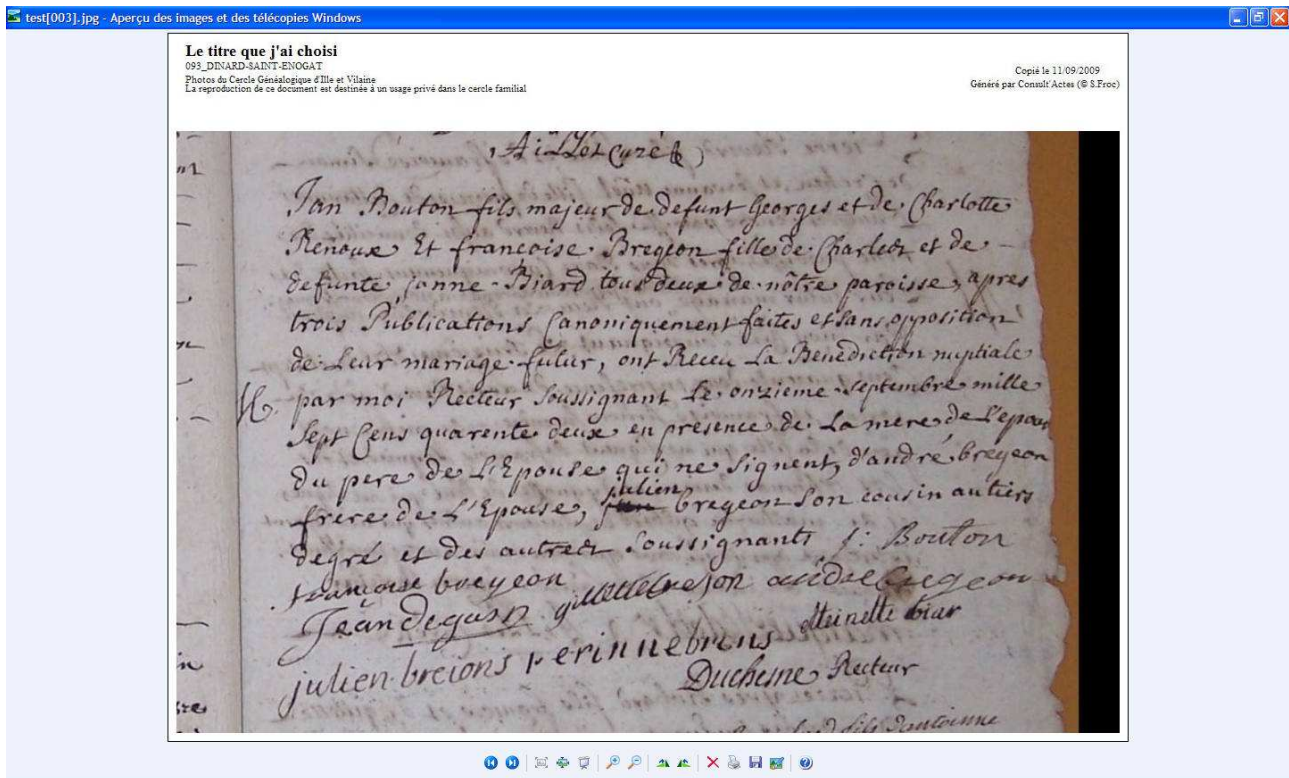 test[003].jpg - Aperçu des images et des télécopies Windows
Le titre que j'ai choisi
093_DINARD-SAINT-ENOGAT
Photos du Cercle Généalogique d'Ille et Vilaine
La reproduction de ce document est destinée à un usage privé dans le cercle familial
Copié le 11/09/2009
Généré par Consult'Actes (© S.Froc)
Jan Bouton fils majeur de defunt Georges et de Charlotte
Renoux Et francoise Bregeon fille de Charles et de
defunte janne Biard tous deux de nôtre paroisse, apres
trois Publications Canoniquement faites et sans opposition
de Leur mariage futur, ont Receu La Benediction nuptiale
par moi Recteur Soussignant Le onzieme Septembre mille
Sept Cens quarente deux en presence de La mere de L'epoux
du pere de L'Epouse qui ne Signent, d'andré bregeon
frere de L'Epouse, julien bregeon Son cousin au tiers
degré et des autres Soussignants J: Bouton
francoise breyeon
andre bregeon
Jean
julien breions perinne
biar
Duchesne Recteur
fils d'antoinne